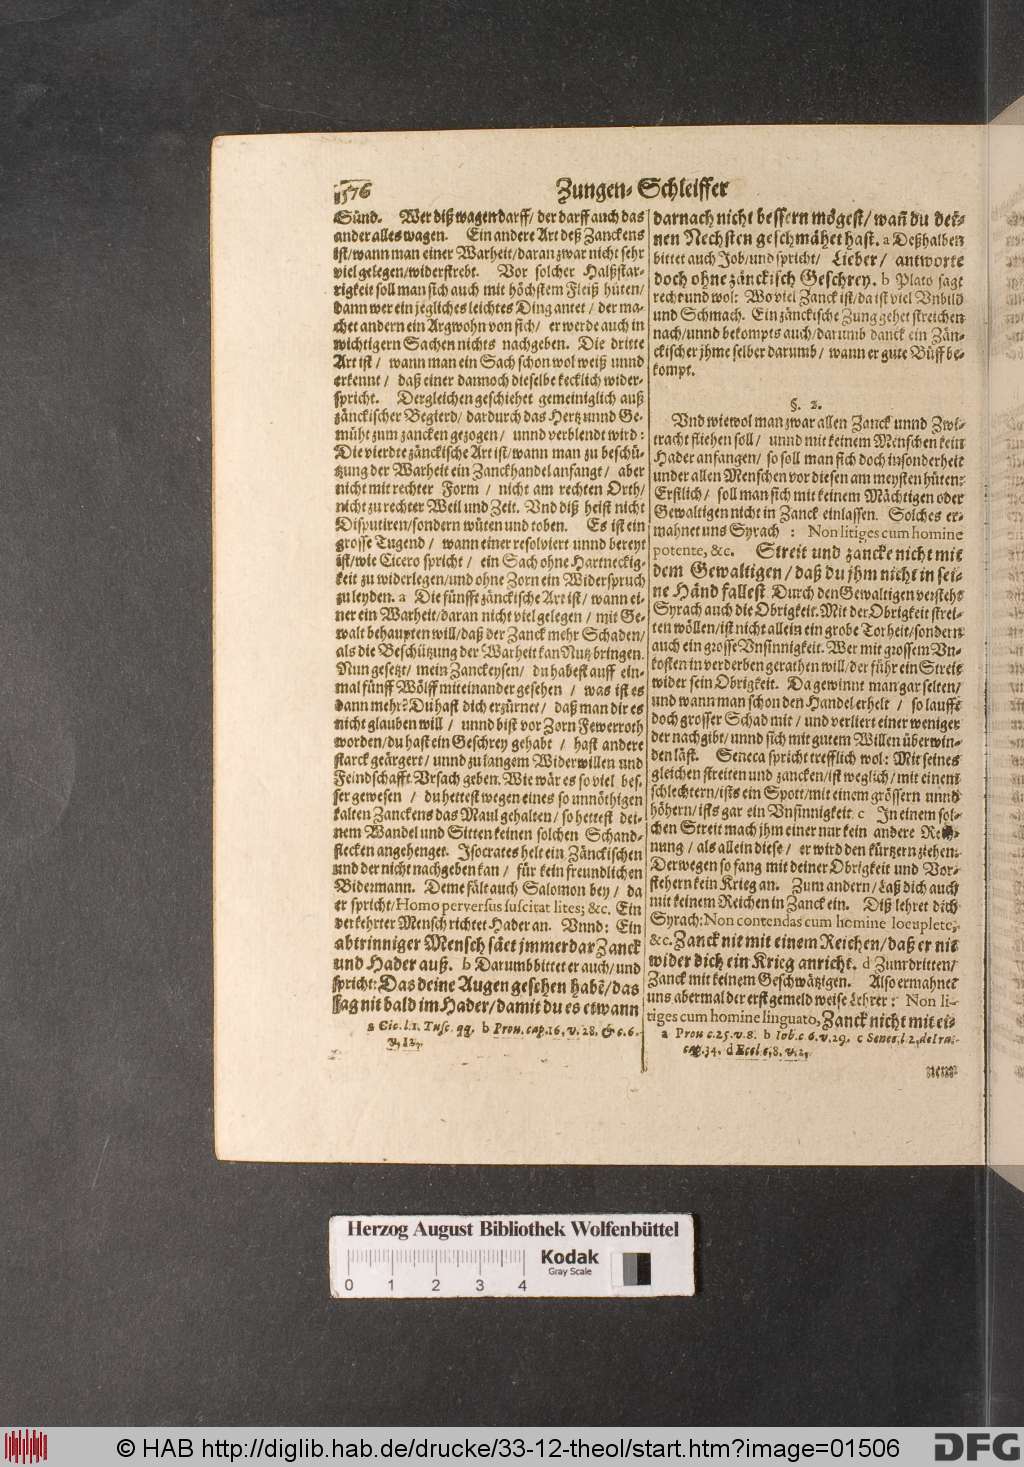 576
Zungen-Schleiffer
Sünd. Wer diß wagen darff/ der darff auch das
ander alles wagen. Ein andere Art deß Zanckens
ist/ wann man einer Warheit/ daran zwar nicht sehr
viel gelegen/ widerstrebt. Vor solcher Halßstar-
rigkeit soll man sich auch mit höchstem Fleiß hüten/
dann wer ein jegliches leichtes Ding antet/ der ma-
chet andern ein Argwohn von sich/ er werde auch in
wichtigern Sachen nichts nachgeben. Die dritte
Art ist/ wann man ein Sach schon wol weiß unnd
erkennt/ daß einer dannoch dieselbe kecklich wider-
spricht. Dergleichen geschiehet gemeiniglich auß
zänckischer Begierd/ dardurch das Hertz unnd Ge-
müht zum zancken gezogen/ unnd verblendt wird:
Die vierdte zänckische Art ist/ wann man zu beschü-
tzung der Warheit ein Zanckhandel anfangt/ aber
nicht mit rechter Form/ nicht am rechten Orth/
nicht zu rechter Weil und Zeit. Vnd diß heist nicht
Disputiren/ sondern wüten und toben. Es ist ein
grosse Tugend/ wann einer resolviert unnd bereyt
ist/ wie Cicero spricht/ ein Sach ohne Hartneckig-
keit zu widerlegen/ und ohne Zorn ein Widerspruch
zu leyden. a Die fünffte zänckische Art ist/ wann ei-
ner ein Warheit/ daran nicht viel gelegen/ mit Ge-
walt behaupten will/ daß der Zanck mehr Schaden/
als die Beschützung der Warheit kan Nutz bringen.
Nun gesetzt/ mein Zanckeysen/ du habest auff ein-
mal fünff Wölff miteinander gesehen/ was ist es
dann mehr? Du hast dich erzürnet/ daß man dir es
nicht glauben will/ unnd bist vor Zorn Fewerroth
worden/ du hast ein Geschrey gehabt/ hast andere
starck geärgert/ unnd zu langem Widerwillen und
Feindschafft Vrsach geben. Wie wär es so viel bes-
ser gewesen/ du hettest wegen eines so unnöthigen
kalten Zanckens das Maul gehalten/ so hettest dei-
nem Wandel und Sitten keinen solchen Schand-
flecken angehenget. Isocrates helt ein Zänckischen
und der nicht nachgeben kan/ für kein freundlichen
Bidermann. Deme fält auch Salomon bey/ da
er spricht/ Homo perversus suscitat lites; &c. Ein
verkehrter Mensch richtet Hader an. Vnnd: Ein
abtrinniger Mensch säet immerdar Zanck
und Hader auß. b Darumb bittet er auch/ und
spricht: Das deine Augen gesehen habē/ das
sag nit bald im Hader/ damit du es etwann
a Cic. l. 1. Tusc. qq. b Prou. cap. 16, v. 28. & c. 6.
v. 12.
darnach nicht bessern mögest/ wañ du dei-
nen Nechsten geschmähet hast. a Deßhalben
bittet auch Job/ und spricht/ Lieber/ antworte
doch ohne zänckisch Geschrey. b Plato sagt
recht und wol: Wo viel Zanck ist/ da ist viel Vnbild
und Schmach. Ein zänckische Zung gehet streichen
nach/ unnd bekompts auch/ darumb danck ein Zän-
ckischer jhme selber darumb/ wann er gute Büff be-
kompt.
§. 2.
Vnd wiewol man zwar allen Zanck unnd Zwi-
tracht fliehen soll/ unnd mit keinem Menschen kein
Hader anfangen/ so soll man sich doch insonderheit
under allen Menschen vor diesen am meysten hüten:
Erstlich/ soll man sich mit keinem Mächtigen oder
Gewaltigen nicht in Zanck einlassen. Solches er-
mahnet uns Syrach: Non litiges cum homine
potente, &c. Streit und zancke nicht mit
dem Gewaltigen/ daß du jhm nicht in sei-
ne Händ fallest Durch den Gewaltigen versteht
Syrach auch die Obrigkeit. Mit der Obrigkeit strei-
ten wöllen/ ist nicht allein ein grobe Torheit/ sondern
auch ein grosse Vnsinnigkeit. Wer mit grossem Vn-
kosten in verderben gerathen will/ der führ ein Streit
wider sein Obrigkeit. Da gewinnt man gar selten/
und wann man schon den Handel erhelt/ so laufft
doch grosser Schad mit/ und verliert einer weniger
der nachgibt/ unnd sich mit gutem Willen überwin-
den läst. Seneca spricht trefflich wol: Mit seines
gleichen streiten und zancken/ ist weglich/ mit einem
schlechtern/ ists ein Spott/ mit einem grössern unnd
höhern/ ists gar ein Vnsinnigkeit c In einem sol-
chen Streit mach jhm einer nur kein andere Rech-
nung/ als allein diese/ er wird den kürtzern ziehen.
Derwegen so fang mit deiner Obrigkeit und Vor-
stehern kein Krieg an. Zum andern/ Laß dich auch
mit keinem Reichen in Zanck ein. Diß lehret dich
Syrach: Non contendas cum homine locuplete,
&c. Zanck nit mit einem Reichen/ daß er nit
wider dich ein Krieg anricht. d Zum dritten/
Zanck mit keinem Geschwätzigen. Also ermahnet
uns abermal der erst gemeld weise Lehrer: Non li-
tiges cum homine linguato, Zanck nicht mit ei-
a Prou c. 25. v. 8. b Iob. c 6. v. 29. c Senec. l 2, de Ira.
cap. 34. d Eccl c, 8. v. 2,
nem
Herzog August Bibliothek Wolfenbüttel
0 1 2 3 4
Kodak
Gray Scale
© HAB http://diglib.hab.de/drucke/33-12-theol/start.htm?image=01506
DFG